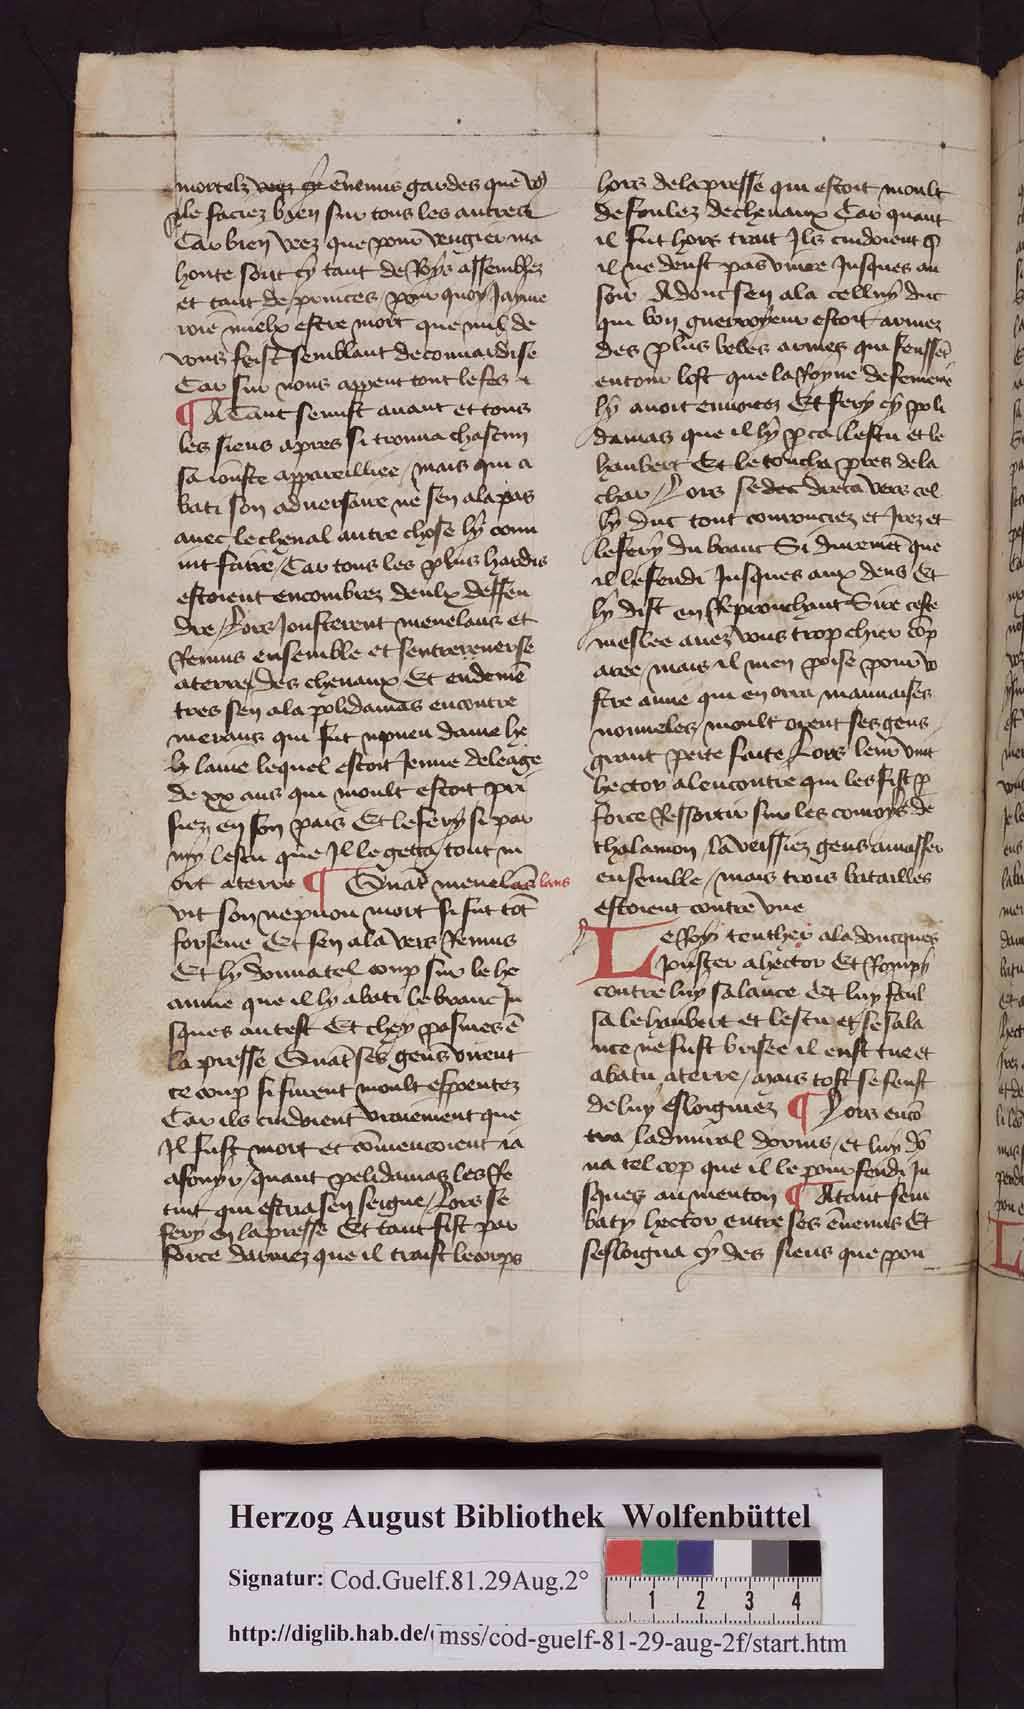 mortelz ennemis gardes que vo9
le faciez bien sur tous les autres
Car bien veez que pour vengier ma
honte sont cy tant de Roys assemblez
et tant de princes / pour quoy Jayme
roie mielx estre mort que nul de
vous feist semblant de couuardise
Car sur nous appent tout le fes
¶ Atant se mist auant et tous
les siens apres si trouua chascun
sa iouste appareilliee / mais qui a
bati son aduersaire ne sen ala pas
auec le cheual autre chose ly conu
int faire / Car tous les plus hardis
estoient encombrez deulx deffen
dre / Lors Jousterent menelaus et
Remus ensemble et sentreuerse
a terre des cheuaux Et endemē
tres sen ala polidamas encontre
merans qui fut nepueu dame he
laine lequel estoit Jenne de leage
de xx ans qui moult estoit pri
siez en son pais Et le fery si par
my lescu que Jl le getta / tout m
ort a terre ¶ Quāt menelaus
vit son nepueu mort si fut tōt
forsene Et sen ala vers Remus
Et ly donna tel coup sur le he
aume que il ly abati le branc Ju
sques au test Et chey pasmes ē
la presse Quāt ses gens virent
ce coup si furent moult espoentez
Car ils cuidoient vraiement que
Jl fust mort et cōmencoient ia
a fouyr / quant polidamas les re
tint qui escria sen seigne / Lors se
fery en la presse Et tant fist par
force darmez que il traist le corps
hors de la presse qui estoit moult
defoulez de cheuaux Car quant
il fut hors trait Jls cuidoient q̄
il ne deust pas viure Jusques au
soir Adonc sen ala celluy duc
qui bon guerroyeur estoit armez
des plus beles armes qui feussēt
entour lost que la Royne de femenie
ly auoit enuoiez Et fery cy poli
damas que il ly pca lescu et le
haubert Et le toucha pres de la
char / Lors se dreca vers cel
ly duc tout courrouciez et Jrez et
le fery du branc Si duremēt que
il le fendi Jusques aux dens Et
ly dist en Reprouchant Sire ceste
meslee auez vous trop chier cōp
aree mais il men poise pour vo
stre amie qui en orra mauuaises
nouuelles / moult orent ses gens
grant perte faite / Lors leur vint
hector alencontre qui les fist p
force Ressortir sur les conroys de
thalamon / la veissiez gens amasser
ensemble / mais trois batailles
estoient contre vne
Le Roy teuther ala doncques
Jouster a hector Et Rompy
contre luy sa lance Et luy faul
sa le haubert et lescu et se sa la
nce ne fust brisee il eust tue et
abatu a terre / mais tost se feust
de luy esloigniez ¶ Lors encō
tra ladmiral dorius / et luy dō
na tel cop que il le pourfendi Ju
sques au menton ¶ Atant sem
baty hector entre ses ēnemis Et
sesloigna cy des siens que pou
Herzog August Bibliothek Wolfenbüttel
Signatur: Cod.Guelf.81.29Aug.2°
1 2 3 4
http://diglib.hab.de/ mss/cod-guelf-81-29-aug-2f/start.htm